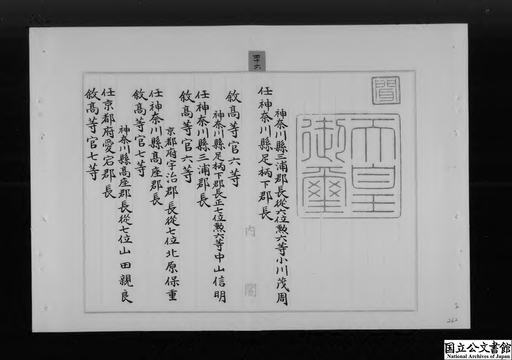 四十六
聞
天皇御璽
神奈川縣三浦郡長從六位勲六等小川茂周
任神奈川縣足柄下郡長
敘高等官六等
神奈川縣足柄下郡長正七位勲六等中山信明
任神奈川縣三浦郡長
敘高等官六等
京都府宇治郡長從七位北原保重
任神奈川縣高座郡長
敘高等官七等
神奈川縣高座郡長從七位山田親良
任京都府愛宕郡長
敘高等官七等
内閣
国立公文書館
National Archives of Japan